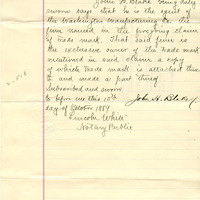 John H. Blake being duly
sworn says that he is the agent of
the Washington Manufacturing Co. the
firm named in the foregoing claim
of trade mark. That said firm is
the exclusive owner of the trade mark
mentioned in said claim a copy
of which trade mark is attached thereto
and made a part thereof
Subscribed and sworn
to before me this 10th
John H. Blake
day of October 1889
Lincoln White
Notary Public